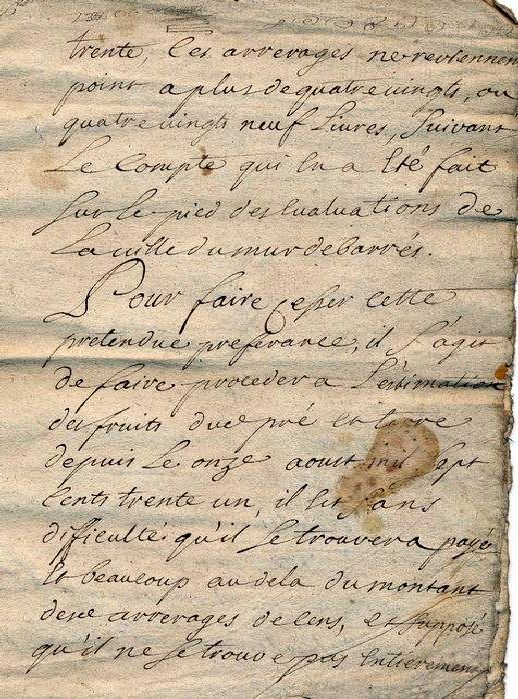 trente, Les arrerages ne reviennen
point a plus de quatre vingts, ou
quatre vingts neuf Livres, Suivant
Le Compte qui En a Eté fait
Sur Le pied des Evaluations De
La ville du mur de barrés.
Pour faire Cesser Cette
pretendue preferance, il S'agit
De faire proceder a L'estimation
des fruits dud pré Et terre
depuis Le onze aoust mil Sept
Cents trente un, il Est Sans
difficulté qu'il Se trouvera payé
Et beaucoup au dela du montant
desd arrerages de Cens, Et Supposé
qu'il ne Se trouve pas Entierement